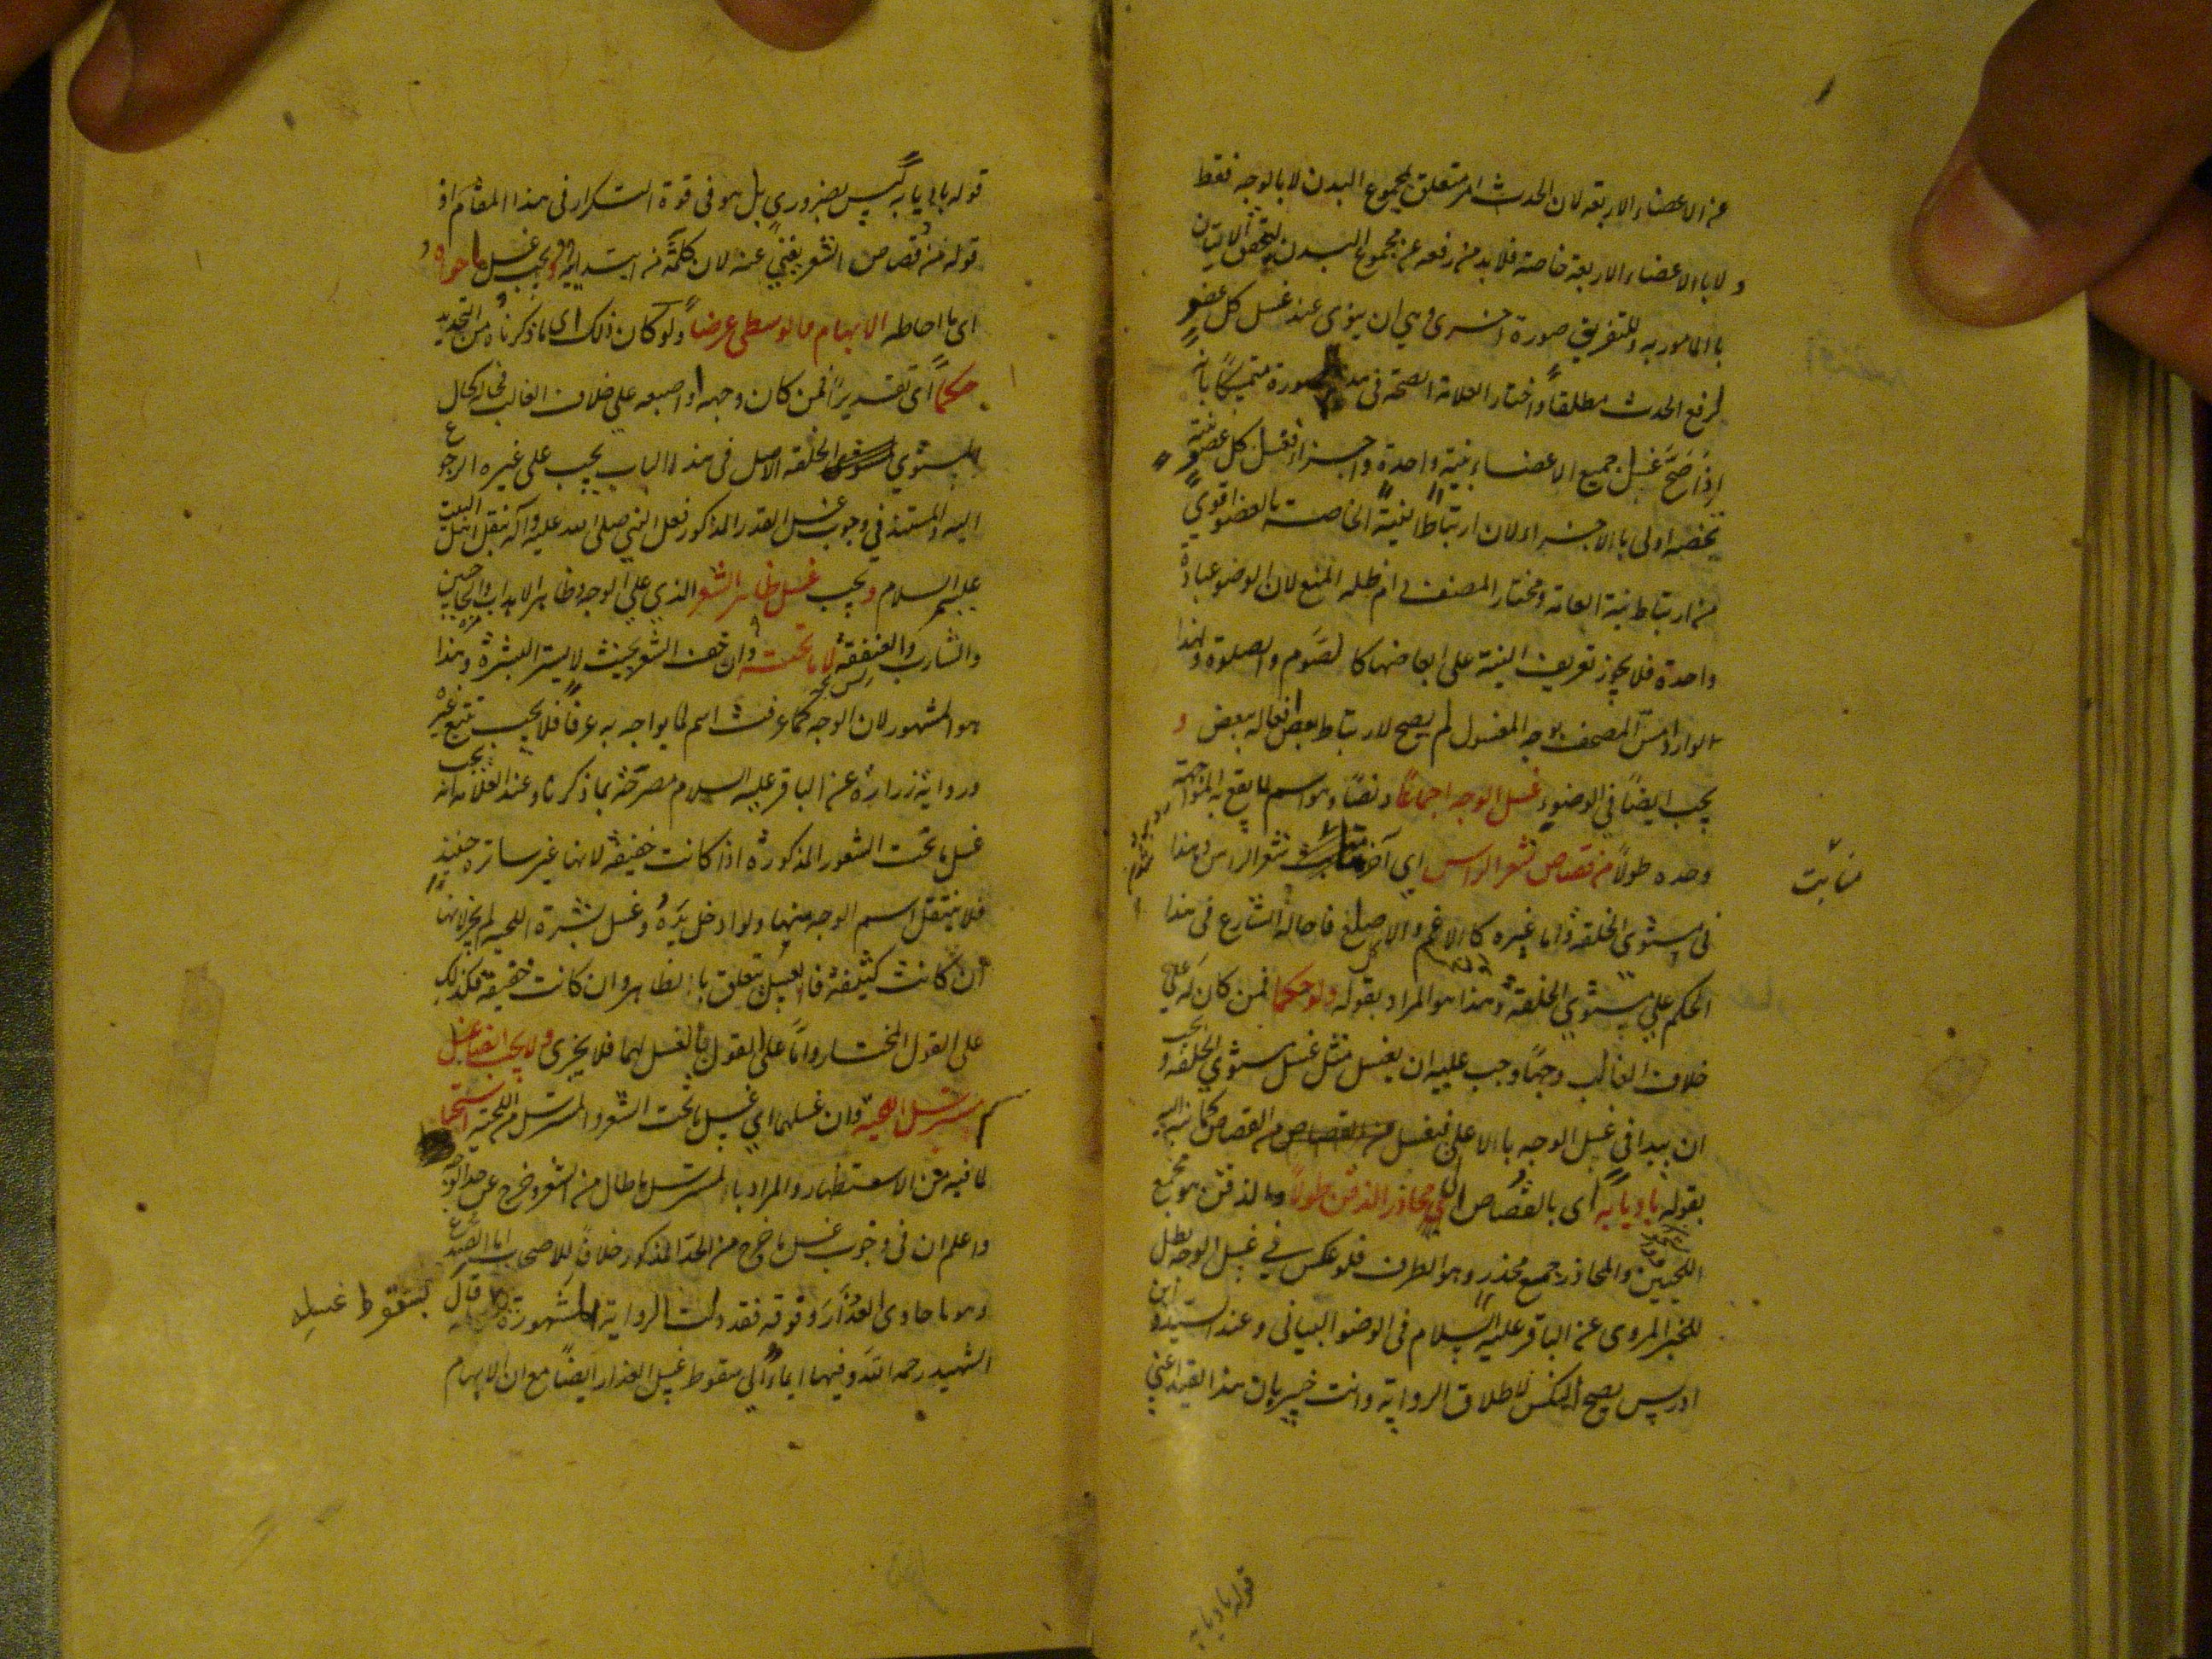 عن الاعضاء الاربعه لان الحدث امر متعلق بمجموع البدن لا بالوجه فقط
و لا با الاعضاء الاربعة خاصة فلابد من رفعه عن مجموع البدن ليتحقق الاتيان
با المامور به وللتفريق صورة اخرى وهي ان ينوى عند غسل كل عضو
لرفع الحدث مطلقاً واختار العلامه الصحة فى هذه الصورة متمسكاً بانه
اذا صَحَّ غسل جميع الاعضاء بنية واحدة واجزأ فغسل كل عضو بنية
تخصه اولى با الاجزاء ولان ارتباط النية الخاصة بالعضو اقوي
من ارتباط نية العامة ومختار المصنف دام ظله المنع لان الوضو عبادة
واحدة فلا يجوز تفريق النية على ابعاضها كا لصَّوم والصلوة ولهذا
لو ارادا مسّ المصحف بوجهه المغسول لم يصح لارتباط بعض افعاله ببعض و
يجب ايضاً في الوضوء غسل الوجه اجماعاً ونصاً وهو اسم لما يقع به المواجهة
وحده طولاً من قصاص شعر الراس اي آخر منابت شعر الراس وهذا
منابت
فى مستوى الخلقه واما غيره كا الاغم والاصلع فاحاله الشارع فى هذا
الحكم علي مستوي الخلقة وهذا هو المراد بقوله ولو حكما فمن كان له علي
خلاف الغالب وجهاً وجب عليه ان يغسل مثل غسل مستوي الخلقه و يجب
ان يبدا في غسل الوجه با الاعلى فيغسل من القصاص كما نبه اليه
بقوله بادياً به اى بالقصاص الى محاذر الذقن طولاً والذقن هو مجمع
اللحيين والمحاذر جمع محذر وهو الطرف فلو عكس في غسل الوجه بطل
للخبر المروى عن الباقر عليه السلام فى الوضو البيانى وعند السيد و ابن
ادريس يصح النكس لاطلاق الرواية وانت خبير بان هذا القيد اعني
قوله بادياً به
قوله باديا به ليس بضروري بل هو فى قوة التكرار فى هذا المقام اذ
قوله من قصاص الشعر يغني عنه لان كلمة من ابتدائية و يجب غسل ما حواه
اى ما احاطه الابهام والوسطى عرضاً ولو كان ذلك اى ما ذكرناه من التحديد
حكماً اى تقديراً فمن كان وجهه او اصبعه على خلاف الغالب فحاله كحال
مستوي الخلقه الاصل فى هذ الباب يجب على غيره الرجوع
اليه والمستند في وجوب غسل القدر المذكور فعل النبي صلى الله عليه وآله بنقل اهل البيت
عليهم السلام و يجب غسل ظاهر الشعر الذي على الوجه وظاهر الاهداب والحاجبين
والشارب والعنفقه لا ما تحته وان خف الشعر بحيث لا يستر البشرة وهذا
هو المشهور لان الوجه كما عرفت اسم لما يواجه به عرفاً فلا يجب تتبع غيره
ورواية زرارة عن الباقر عليه السلام مصرّحة بما ذكرنا وعند العلامه انه يجب
غسل ما تحت الشعور المذكورة اذا كانت خفيفة لانها غير ساترة حينئذ
فلا ينتقل اسم الوجه منها ولو ادخل يَدَهُ وغسل بشرة اللحيه لم يجز لانها
ان كانت كثيفة فا لغسل يتعلق بالظاهر وان كانت خفيفة فكذلك
على القول المختار واماً على القول بالغسل لهما فلا يجزى ولا يجب ايضا غسل
مسترسل اللحية وان غسلهما اي غسل ما تحت الشعر والمسترسل من اللحية استحبا
لما فيه من الاستظهار والمراد با المسترسل ما طال من الشعر وخرج عن حد الوجه
واعلم ان فى وجوب غسل ما خرج من الحد المذكور خلاف للاصحاب اما الصدغ
وهو ما حاوى العذار وفوقه فقد دلت الرواية المشهورة قال
بسقوط غسله
الشهيد رحمه الله وفيها ايماء الي سقوط غسل العذار ايضاً مع ان الابهام